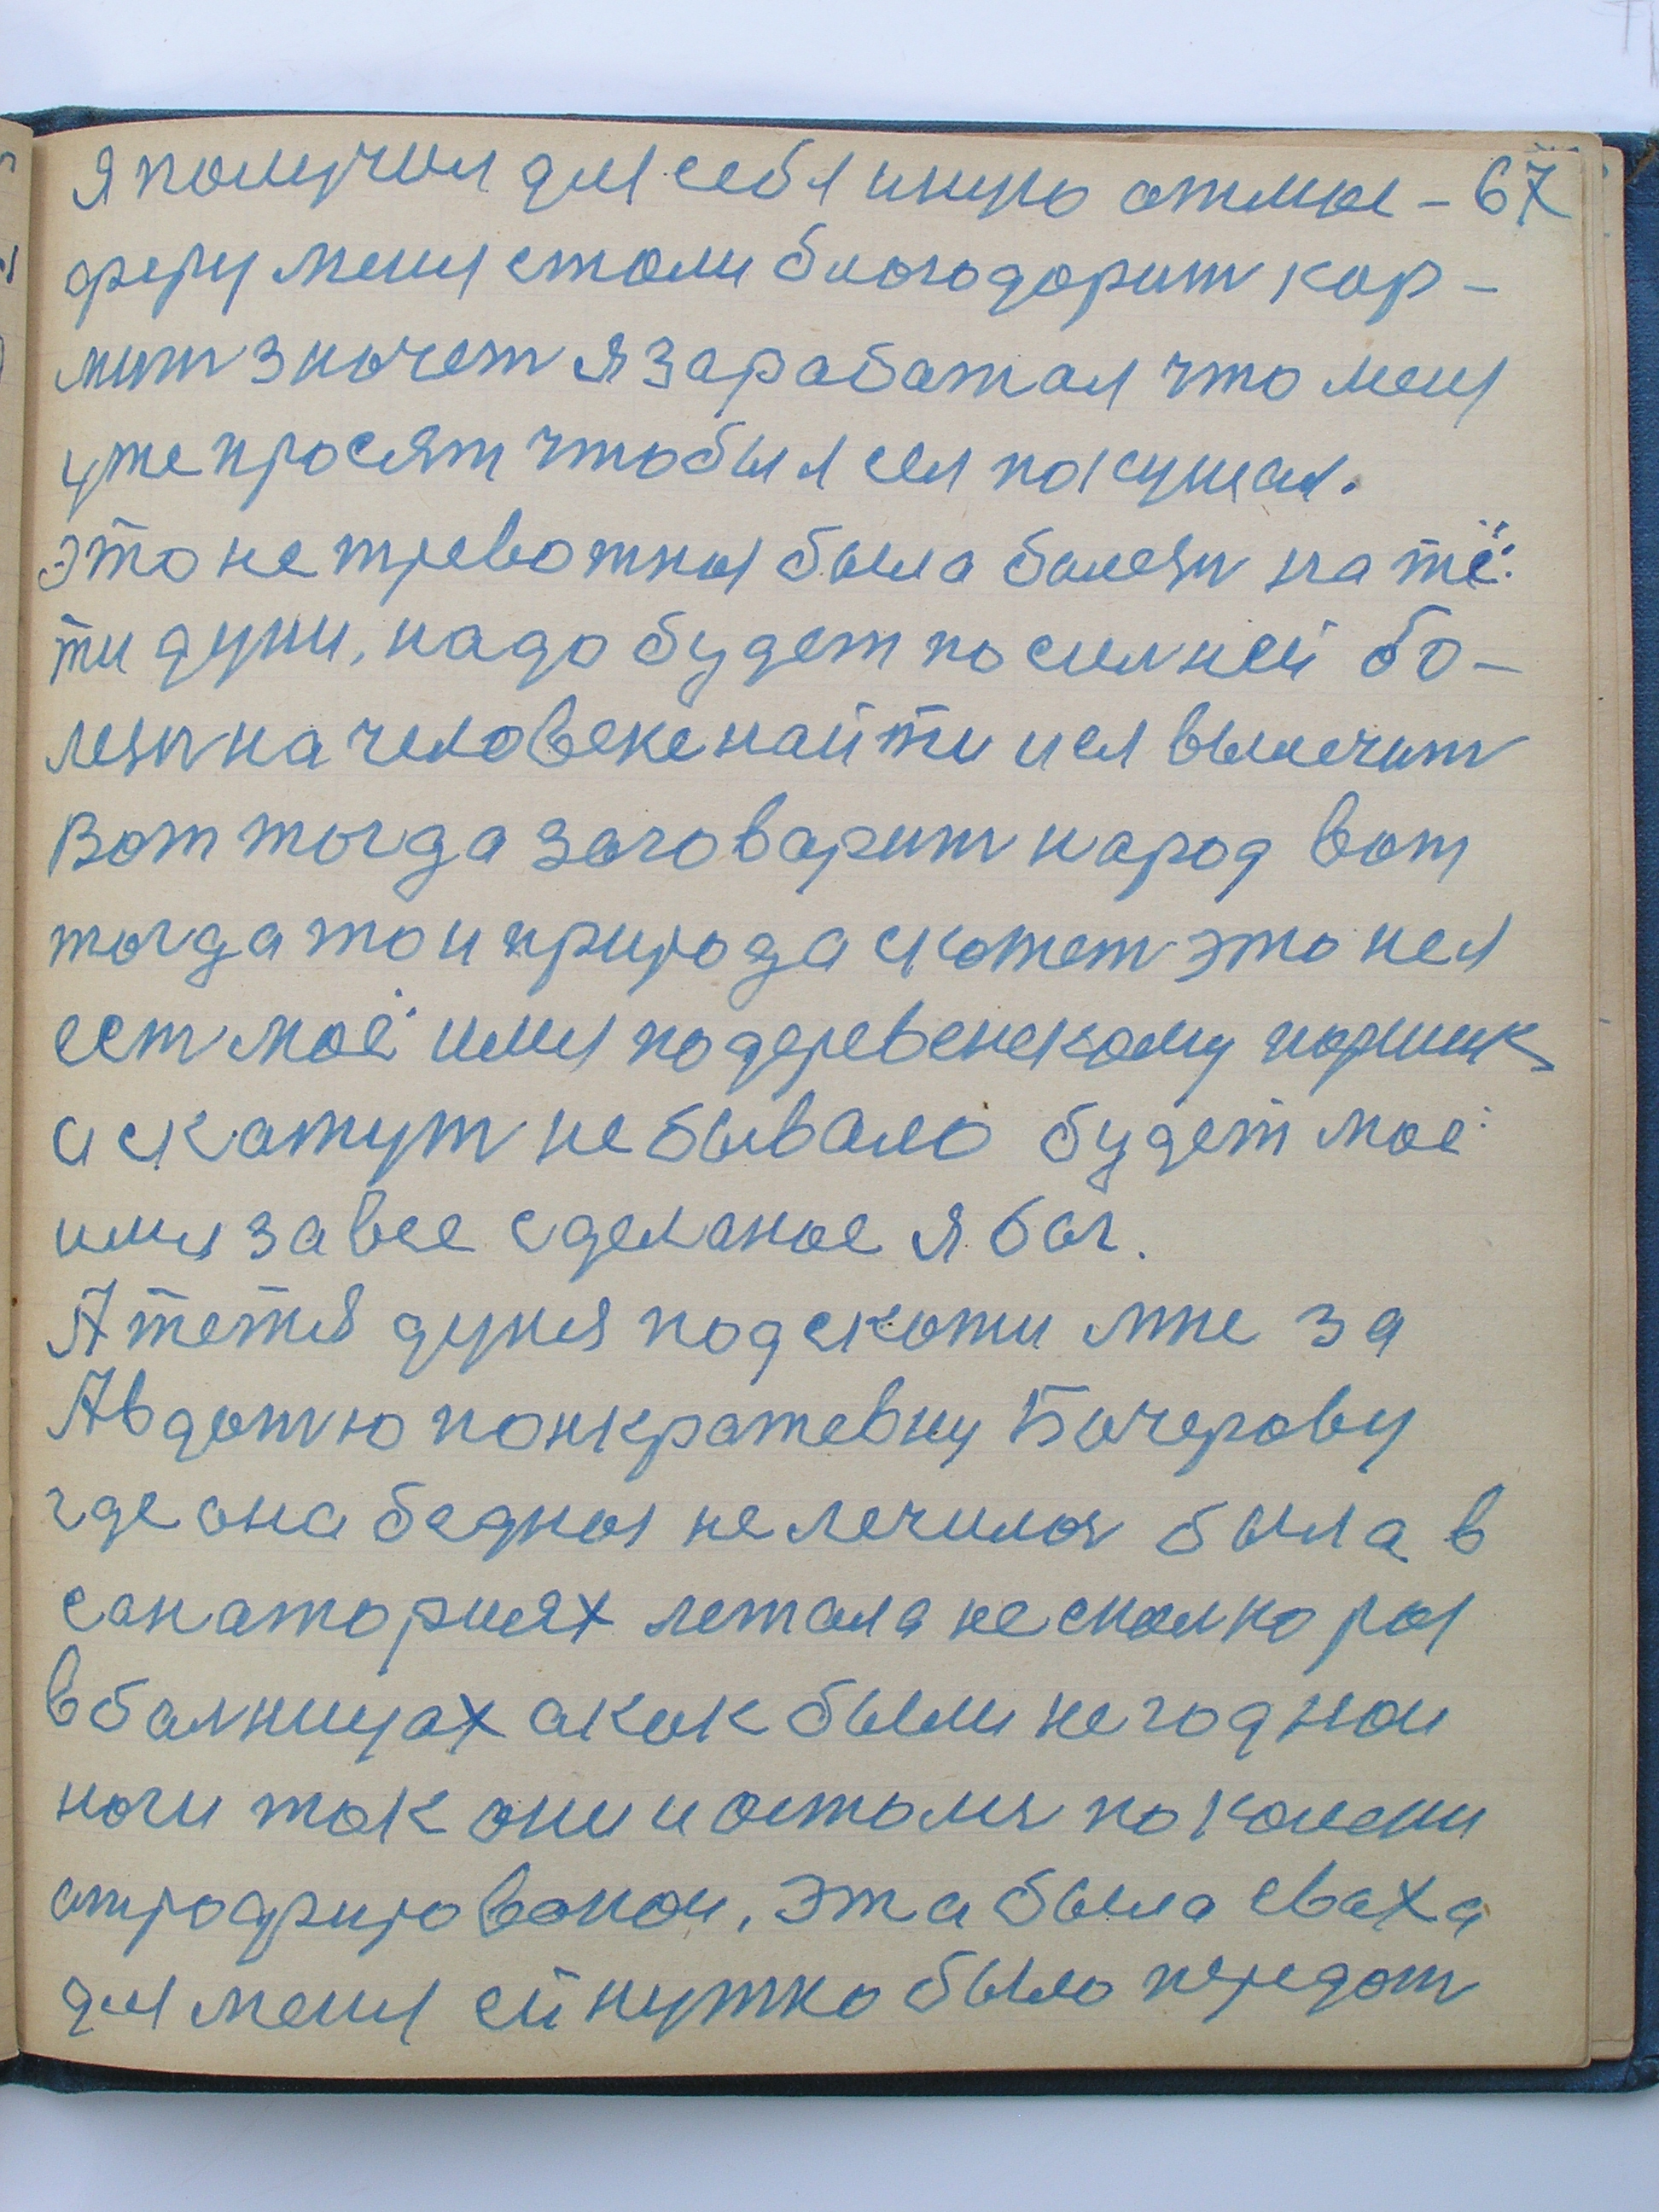 я получил для себя иную атмос – 67
феру меня стали благодарит кор –
мит значет я заработал что меня
уже просят чтобы я сел покушал.
это не тревожная была болезн на тё
ти дуни, надо будет посилней бо –
лезн на человеке найти и ея вылечит
Вот тогда заговарит народ вот
тогда то и природа скажет это не я
ест моё имя подеревенскому паршик
а скажут не бывало будет моё
имя за все сделаное я бог.
А тетя дуня подскажи мне за
Авдотю понкратевну Бочерову
где она бедная не лечилас была в
санаториях летала несколко раз
в балницах а как были негодной
ноги так они и осталис по колени
атрофированои. эта была сваха
для меня ей нужно было передат